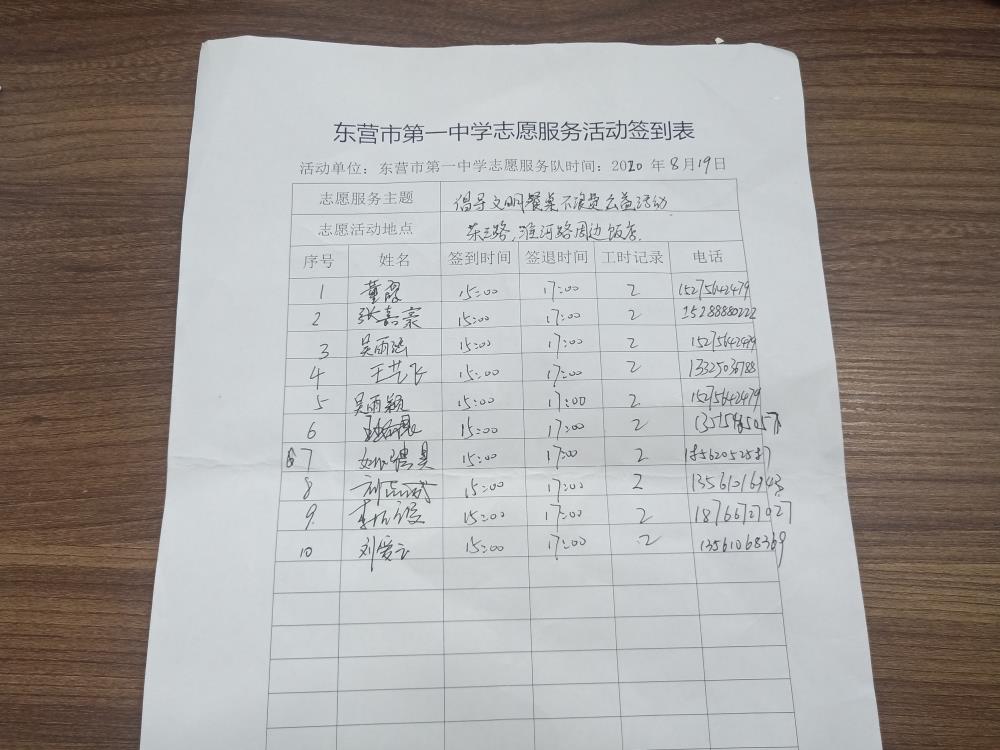 东营市第一中学志愿服务活动签到表
活动单位：东营市第一中学志愿服务队时间：2020 年 8 月 19 日
志愿服务主题 倡导文明餐桌不浪费公益活动
志愿活动地点 东三路，淮河路周边饭店
序号 姓名 签到时间 签退时间 工时记录 电话
1 董 15:00 17:00 2 15275642479
2 张嘉豪 15:00 17:00 2 15288880222
3 吴雨 15:00 17:00 2 15275642479
4 王艺飞 15:00 17:00 2 13325036788
5 吴雨颖 15:00 17:00 2 15275642479
6 15:00 17:00 2
7 15:00 17:00 2
8 15:00 17:00 2 13561016943
9 15:00 17:00 2 18766727027
10 刘爱云 15:00 17:00 2 13561068369